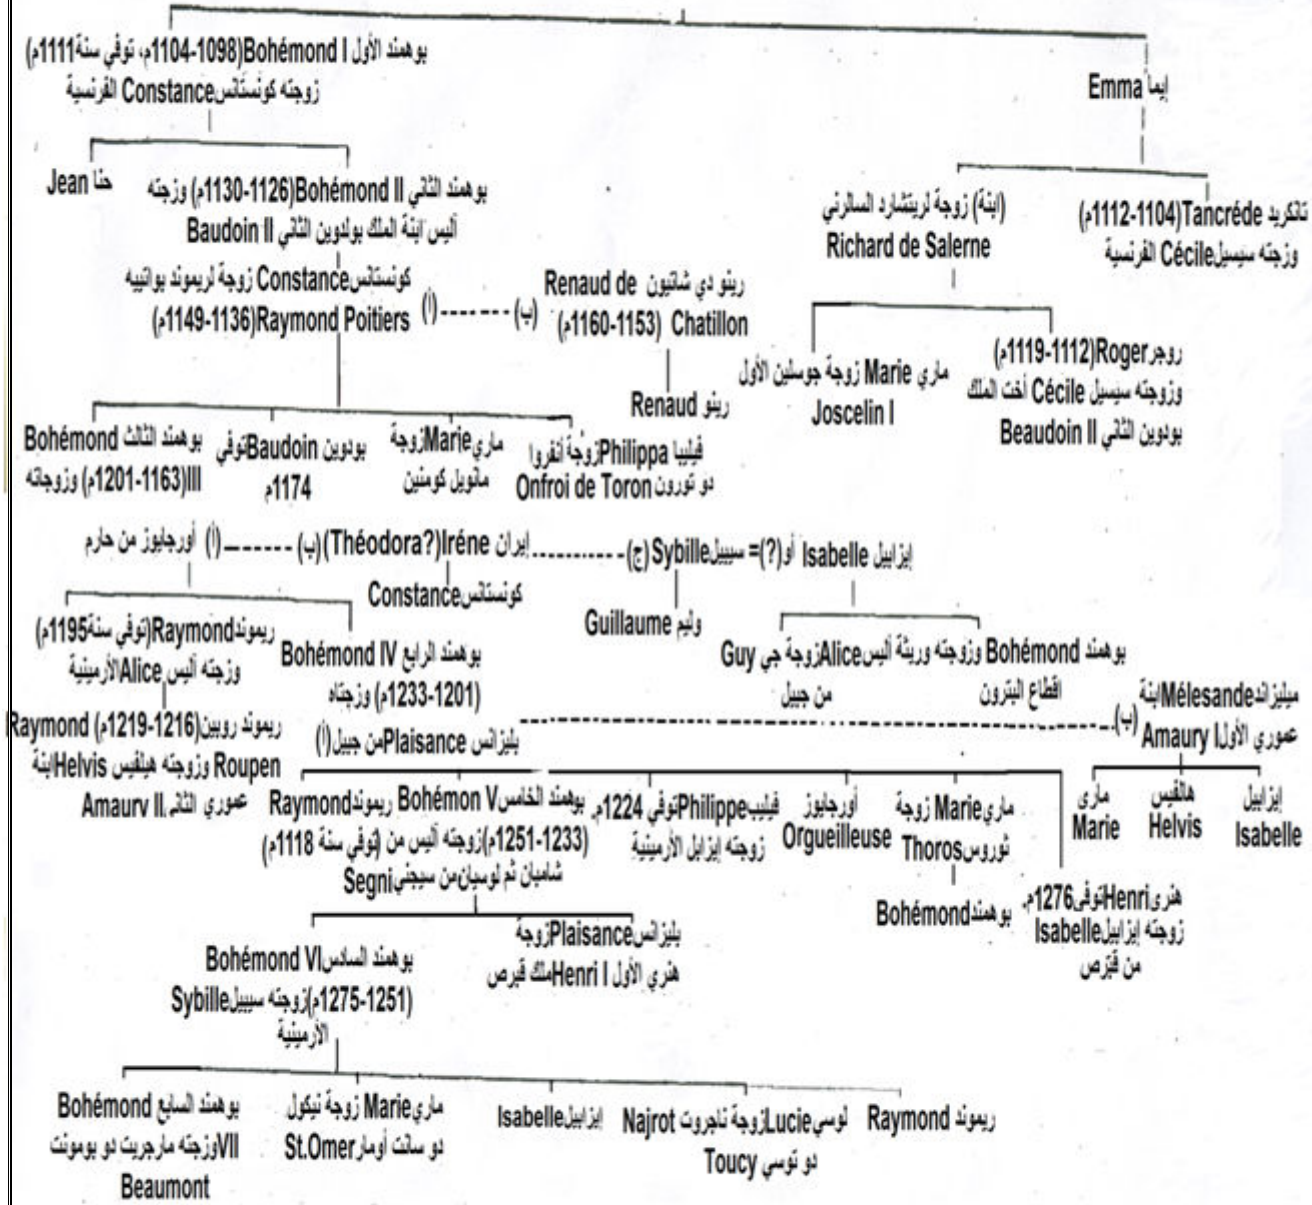 بوهمند الأول Bohémond I(1098-1104م، توفي سنة1111م)
زوجته كونستانس Constance الفرنسية
إيما Emma
حنا Jean
بوهمند الثاني Bohémond II(1126-1130م) وزجته
أليس ابنة الملك بولدوين الثاني Baudoin II
(ابنة) زوجة لريتشارد السالرني
Richard de Salerne
تانكريد Tancréde(1104-1112م)
وزجته سيسيل Cécile الفرنسية
كونستانس Constance زوجة لريموند بواتييه
Raymond Poitiers(1136-1149م)
(أ) ------- (ب)
رينو دي شاتيون Renaud de
Chatillon (1153-1160م)
رينو Renaud
ماري Marie زوجة جوسلين الأول
Joscelin I
روجر Roger(1112-1119م)
وزوجته سيسيل Cécile أخت الملك
بودوين الثاني Beaudoin II
بوهمند الثالث Bohémond
III(1163-1201م) وزوجاته
بودوين Baudoin توفي
1174م
ماري Marie زوجة
مانويل كومنين
فيليبا Philippa زوجة أنفروا
دو تورون Onfroi de Toron
(أ) أورجايوز من حارم
إيران Iréne (Théodora?) (ب)
إيزابيل Isabelle أو(?)= سيبيل Sybille (ج)
كونستانس Constance
وليم Guillaume
ريموند Raymond(توفي سنة1195م)
وزجته أليس Alice الأرمينية
بوهمند الرابع Bohémond IV
(1201-1233م) وزجتاه
أليس Alice زوجة جي Guy
من جبيل
بوهمند Bohémond وزوجته وريثة
اقطاع البترون
ريموند روبين(1216-1219م) Raymond
Roupen وزوجته هيلفيس Helvis ابنة
عموري الثاني Amaury II.
بليزانس Plaisance من جبيل(أ)
(ب) ميليزاند Mélesande ابنة
عموري الأول Amaury I
ريموند Raymond
(توفي سنة 1118م)
بوهمند الخامس Bohémon V
(1233-1251م)زوجته أليس من
شامبان ثم لوسيان من سيجني Segni
فيليب Philippe توفي 1224م.
زوجته إيزابل الأرمينية
أورجايوز
Orgueilleuse
ماري Marie زوجة
ثوروس Thoros
بوهمند Bohémond
هنرى Henri توفى 1276م.
زوجته إيزابيل Isabelle
من قبرص
مارى
Marie
هالفيس
Helvis
إيزابيل
Isabelle
بوهمند السادس Bohémond VI
(1251-1275م)زوجته سيبيل Sybille
الأرمينية
بليزانس Plaisance زوجة
هنري الأول Henri I ملك قبرص
بوهمند السابع Bohémond
VII وزجته مارجريت دو بومونت
Beaumont
ماري Marie زوجة نيكول
دو سانت أومار St.Omer
إيزابيل Isabelle
لوسي Lucie زوجة ناجروت Najrot
دو توسي Toucy
ريموند Raymond